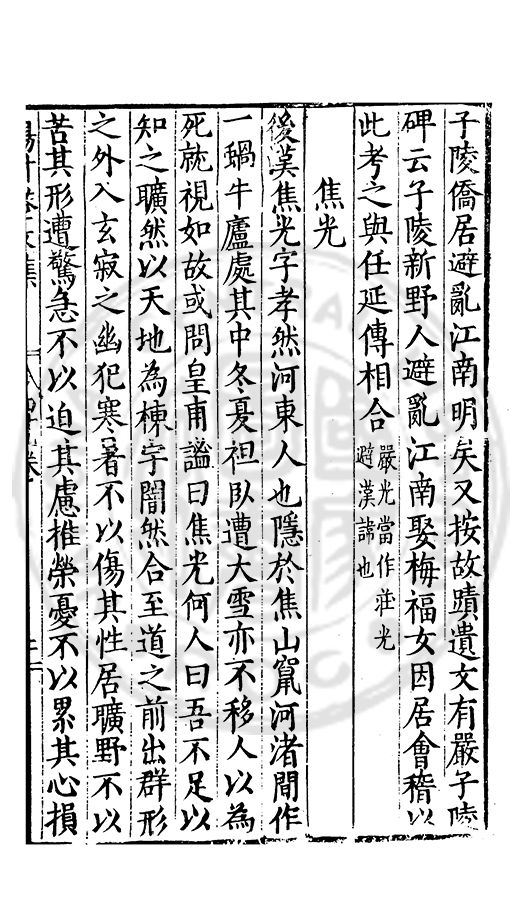 子陵僑居避亂江南明矣又按故蹟遺文有嚴子陵
碑云子陵新野人避亂江南娶梅福女因居會稽以
此考之與任延傳相合嚴光當作莊光
避漢諱也
焦光
後漢焦光字孝然河東人也隱於焦山竄河渚間作
一蝸牛廬處其中冬夏袒臥遭大雪亦不移人以為
死就視如故或問皇甫謐曰焦光何人曰吾不足以
知之曠然以天地為棟宇闇然合至道之前出群形
之外入玄寂之幽犯寒暑不以傷其性居曠野不以
苦其形遭驚急不以迫其慮推榮憂不以累其心損